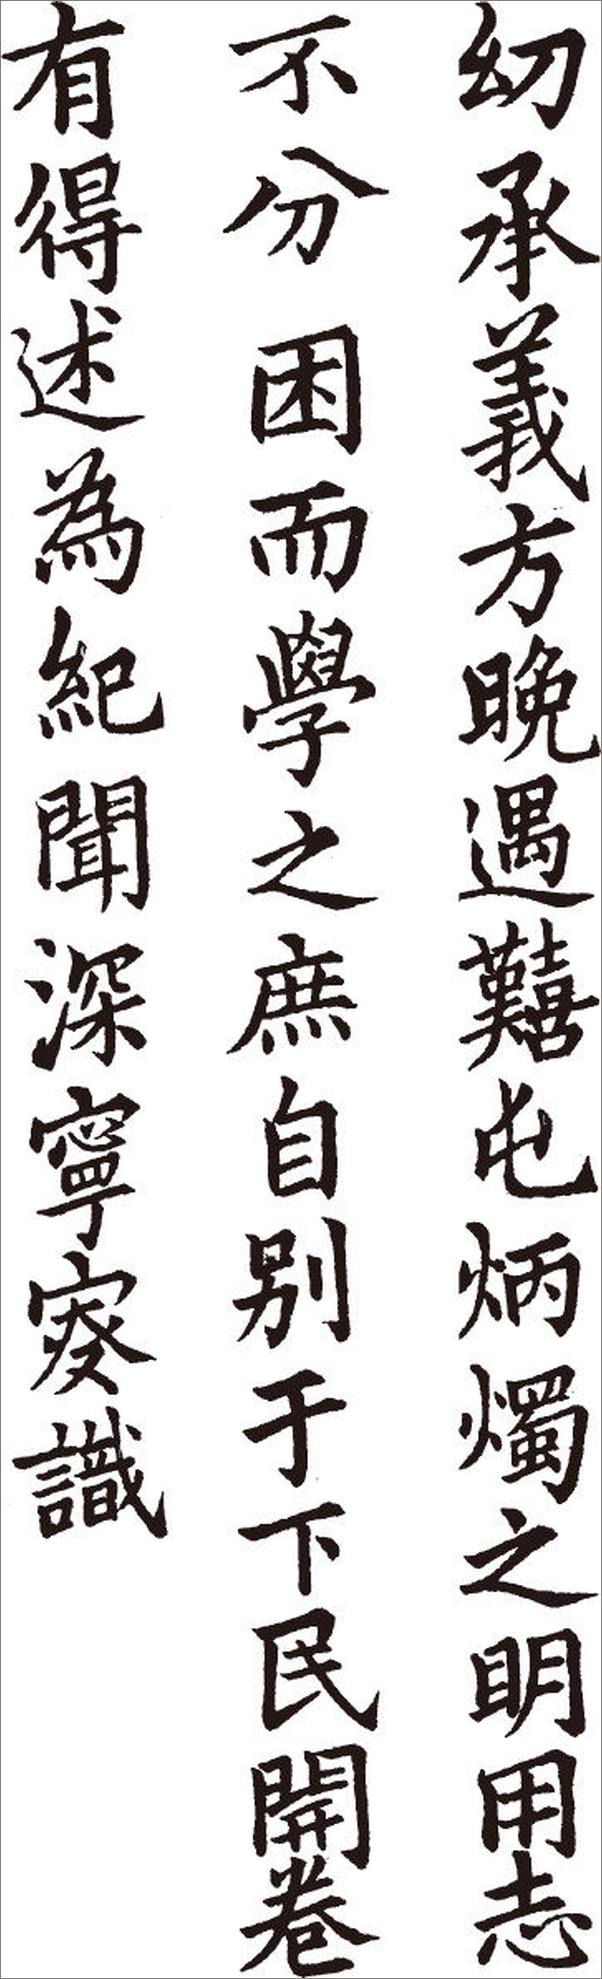 㓜承義方晚遇囏屯炳燭之明用志
不分困而學之庶自别于下民開卷
有得述為紀聞深寧叜識